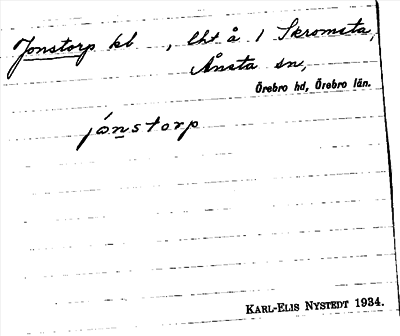 Jonstorp kb , lht å 1 Skromsta,
Ånsta sn,
Örebro hd, Örebro län.
jónstorp
KARL-ELIS NYSTEDT 1934.